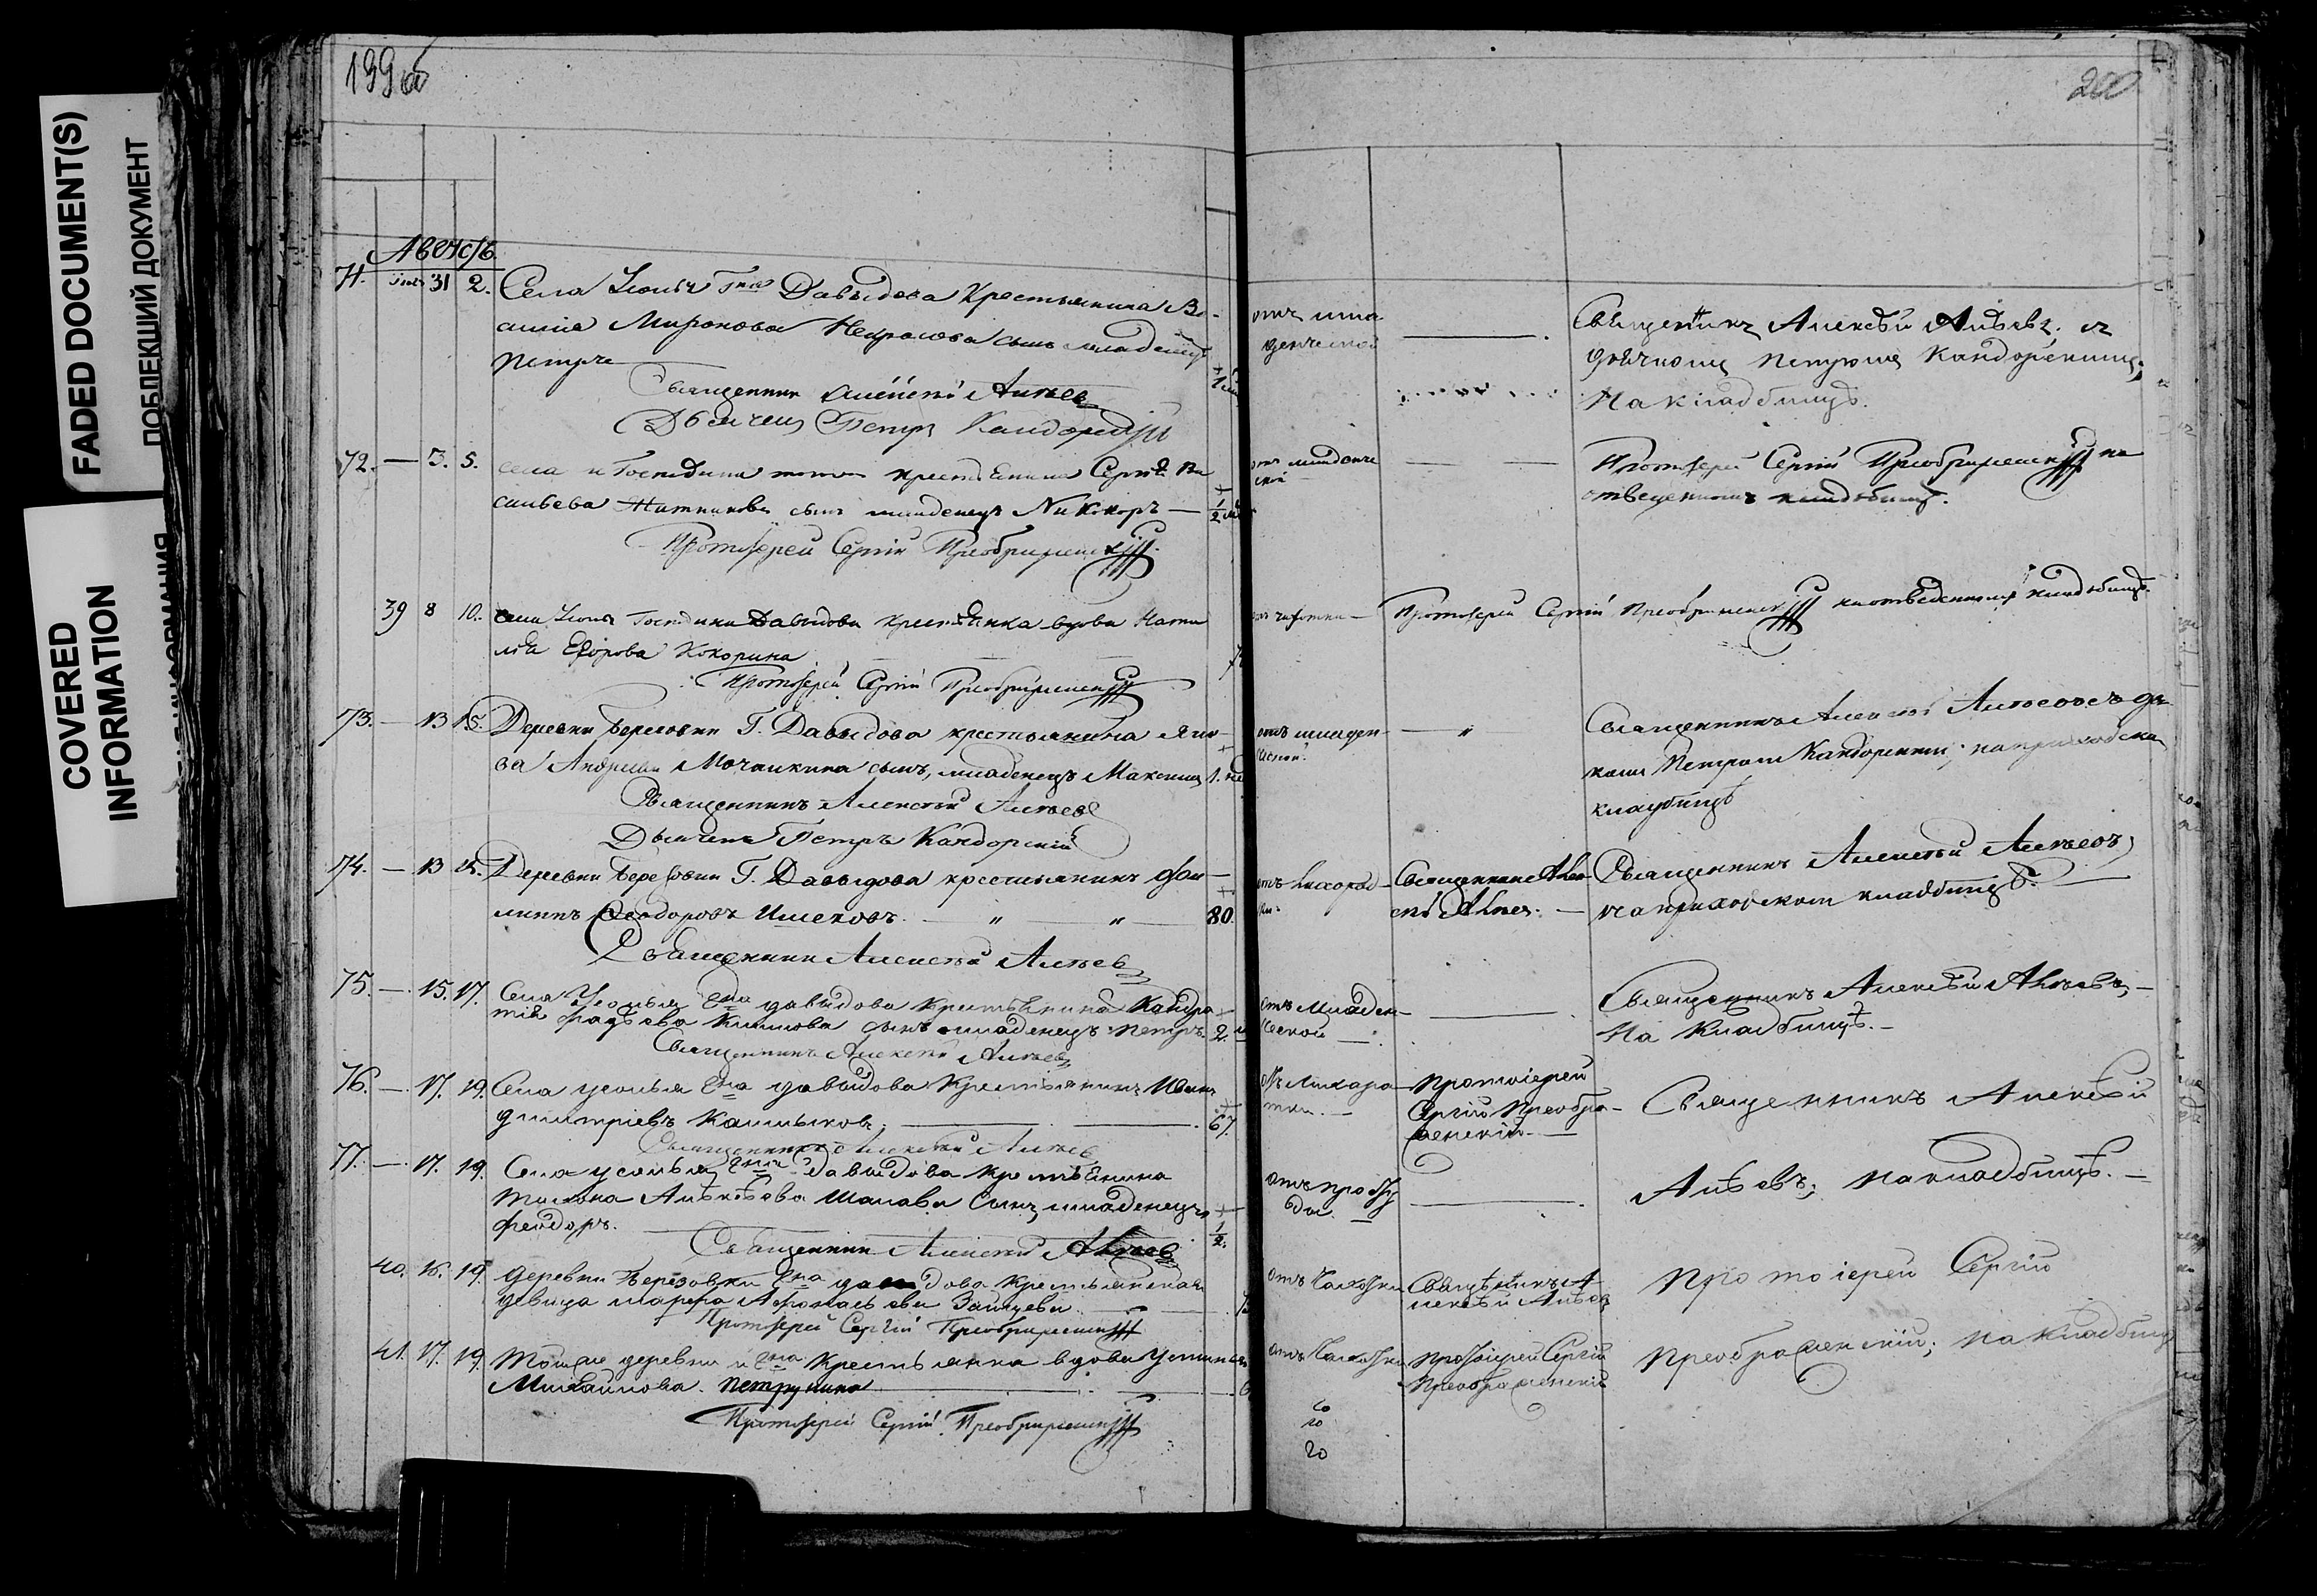 FADED DOCUMENT(S)
ПОБЛЕКШИЙ ДОКУМЕНТ
COVERED
INFORMATION
199 об
200
Августъ
71. 31 2. Села Усолья Гна Давыдова Крестьянина
Миронова Некрасова сынъ младенецъ
Петръ
Священникъ Алексѣй Аліевъ
Дьячекъ Петръ Кандорскій
72. — 3. 5. села и Господина крестьянина Сергѣя Ва
сильева Житникова сынъ младенецъ Никаноръ — 1/2
Протоіерей Сергій Преображенскій
39 8 10. села Усолья Господина Давыдова крестьянка вдова Ната
лія Егорова Кокорина
Протоіерей Сергій Преображенскій
73. — 13 15. Деревни Березовки Г. Давыдова крестьянина Яко-
ва Андреева Мочалкина сынъ, младенецъ Максимъ 1.
Священникъ Алексѣй Аліевъ
Дьячекъ Петръ Кандорскій
74. — 13 15. Деревни Березовки Г. Давыдова крестьянинъ
Ѳеодоровъ 80.
Священникъ Алексѣй Аліевъ
75. — 15. 17. Села Усолья Гна Давыдова Крестьянина Кандра
тія Фадѣева Климова сынъ младенецъ Петръ. 2.
Священникъ Алексѣй Аліевъ
76. — 17. 19. Села Усолья Гна Давыдова Крестьянинъ Иванъ
Дмитріевъ Калмыковъ 67.
Священникъ Алексѣй Аліевъ
77. — 17. 19. Села Усолья Гна Давыдова крестьянина
Алексѣева Шалава Сынъ младенецъ
Феодоръ. 1/2.
Священникъ Алексѣй Аліевъ
40. 16. 19. Деревни Березовки Гна Давыдова Крестьянская
девица Марфа Афонасьева Зайцева
Протоіерей Сергій Преображенскій
41. 17. 19. Тойже деревни и Гна Крестьянка вдова Устинья
Михайлова Петрунина
Протоіерей Сергій Преображенскій
отъ мла
денческой
Священникъ Алексѣй Аліевъ. съ
дьячкомъ Петромъ Кандорскимъ;
На кладбищѣ.
отъ младенче
ской
Протоіерей Сергій Преображенскій на
отведенномъ кладбищѣ.
отъ чахотки — Протоіерей Сергій Преображенскій на отведенномъ кладбищѣ.
отъ младен-
ческой.
Священникъ Алексѣй Аліевъ съ дья
комъ Петромъ Кандорскимъ; на приходскомъ
кладбищѣ
отъ лихорад-
ки
Священникъ Алек
сѣй Аліевъ. —
Священникъ Алексѣй Аліевъ,
на приходскомъ кладбищѣ.
отъ Младен-
ческой
Священникъ Алексѣй Аліевъ, —
На Кладбищѣ. —
отъ Лихора
тки. —
Протоіерей
Сергій Преобра-
женскій. —
Священникъ Алексѣй
отъ
Аліевъ; на кладбищѣ. —
отъ Чахотки
Священникъ А
лексѣй Аліевъ
Протоіерей Сергій
отъ Чахотки
Протоіерей Сергій
Преображенскій
Преображенскій; на Кладбищѣ
20